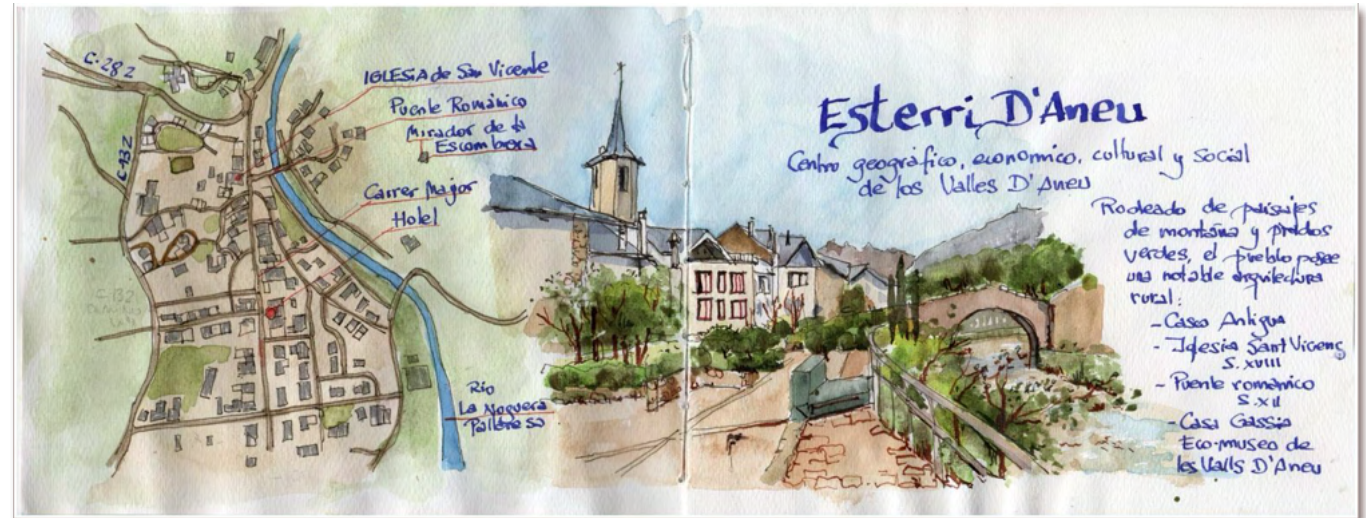 C-282
C-132
IGLESIA de San Vicente
Puente Románico
Mirador de la
Escombrera
Carrer Major
Hotel
C-132
Río
La Noguera
Pallaresa
Esterri D'Aneu
Centro geográfico, economico, cultural y social
de los Valles D'Aneu
Rodeado de paisajes
de montaña y prados
verdes, el pueblo posee
una notable arquitectura
rural:
- Casco Antiguo
- Iglesia Sant Vicenç
S. XVIII
- Puente románico
S. XII
- Casa Gassia
Eco-museo de
les Valls D'Aneu